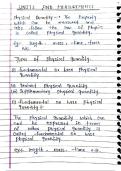 UNITS AND MEASUREMENTS
Physical Quantity - The Property
which can be measured and
also follow the law of Physics
is called Physical Quantity.
Eg:- length, mass, time, force
etc.
Types of Physical Quantity:-
i) Fundamental or base Physical
Quantity
ii) Derived Physical Quantity
iii) Supplementary Physical Quantity
i) Fundamental or base Physical
Quantity:-
The Physical Quantity which can
not be expressed in terms
of other Physical Quantity is
called fundamental or base
Physical Quantity.
Eg:- length, mass, time etc.